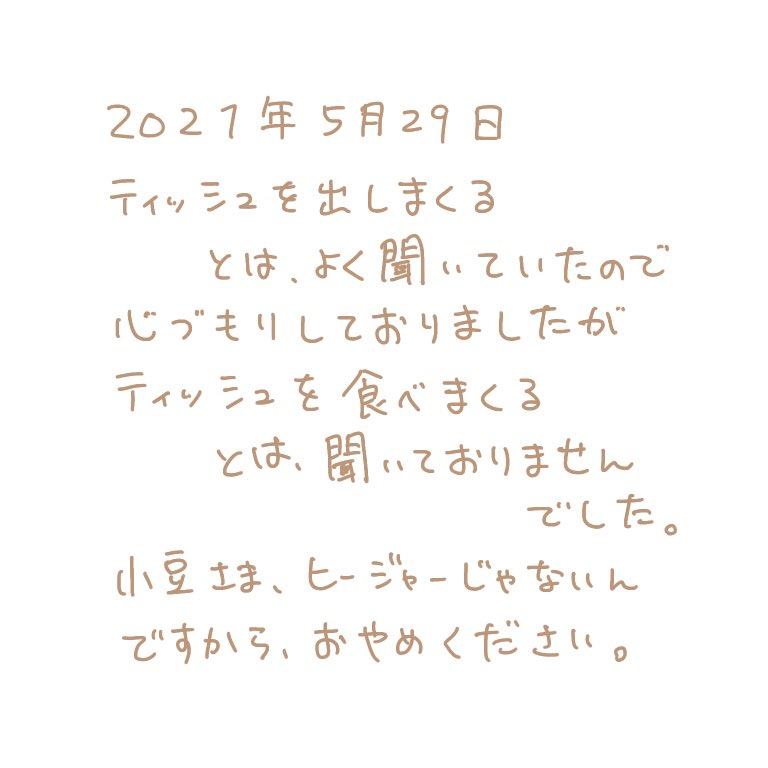 2021年5月29日
ティッシュを出しまくる
とは、よく聞いていたので
心づもりしておりましたが
ティッシュを食べまくる
とは、聞いておりません
でした。
小豆さま、ヒージャーじゃないん
ですから、おやめください。